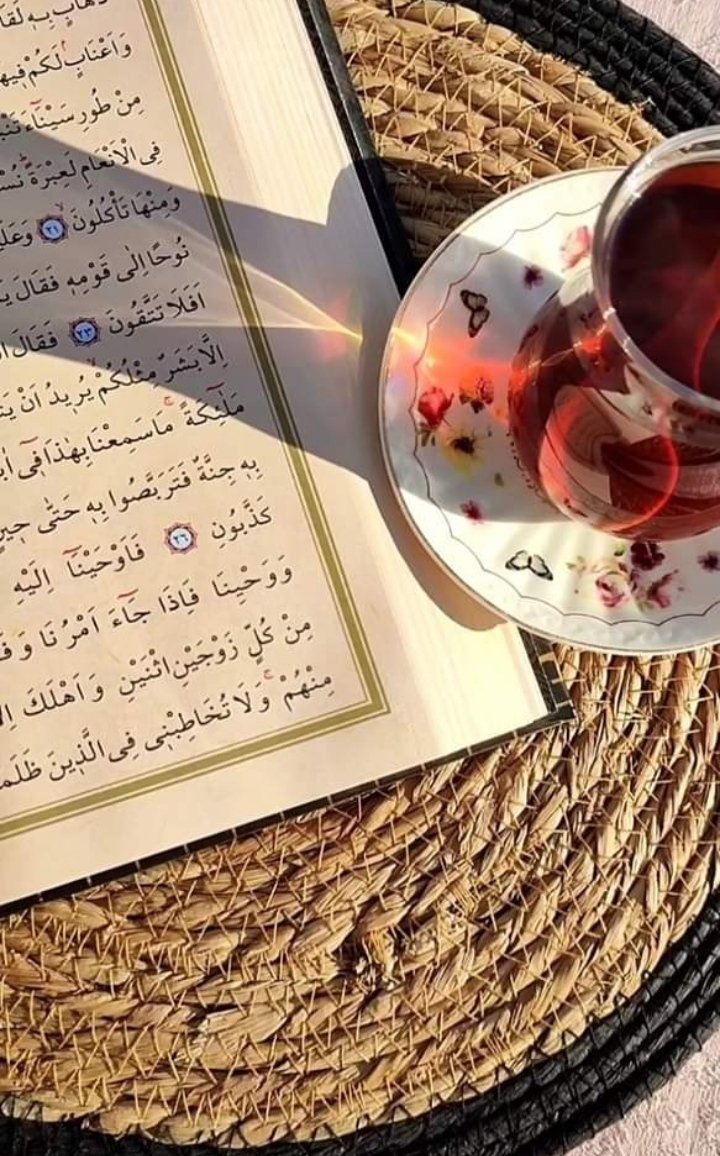 ذَهَابٍ بِهٖ لَقَا
وَاَعْنَابٍ لَكُمْ فٖيهَا
مِنْ طُورِ سَيْنَٓاءَ تَنْبُ
فِى الْاَنْعَامِ لَعِبْرَةً نُسْ
وَمِنْهَا تَأْكُلُونَ ۙ ﴿٢١﴾ وَعَلَيْ
نُوحًا اِلٰى قَوْمِهٖ فَقَالَ يَا
اَفَلَا تَتَّقُونَ ﴿٢٣﴾ فَقَالَ الْ
اِلَّا بَشَرٌ مِثْلُكُمْ ۙ يُرٖيدُ اَنْ يَتَ
مَلٰٓئِكَةً ۚ مَا سَمِعْنَا بِهٰذَا فٖٓى اٰبَٓ
بِهٖ جِنَّةٌ فَتَرَبَّصُوا بِهٖ حَتّٰى حٖينٍ
كَذَّبُونِ ﴿٢٦﴾ فَاَوْحَيْنَٓا اِلَيْهِ
وَوَحْيِنَا فَاِذَا جَٓاءَ اَمْرُنَا وَفَ
مِنْ كُلٍّ زَوْجَيْنِ اثْنَيْنِ وَاَهْلَكَ اِلَّ
مِنْهُمْ ۚ وَلَا تُخَاطِبْنٖى فِى الَّذٖينَ ظَلَمُ